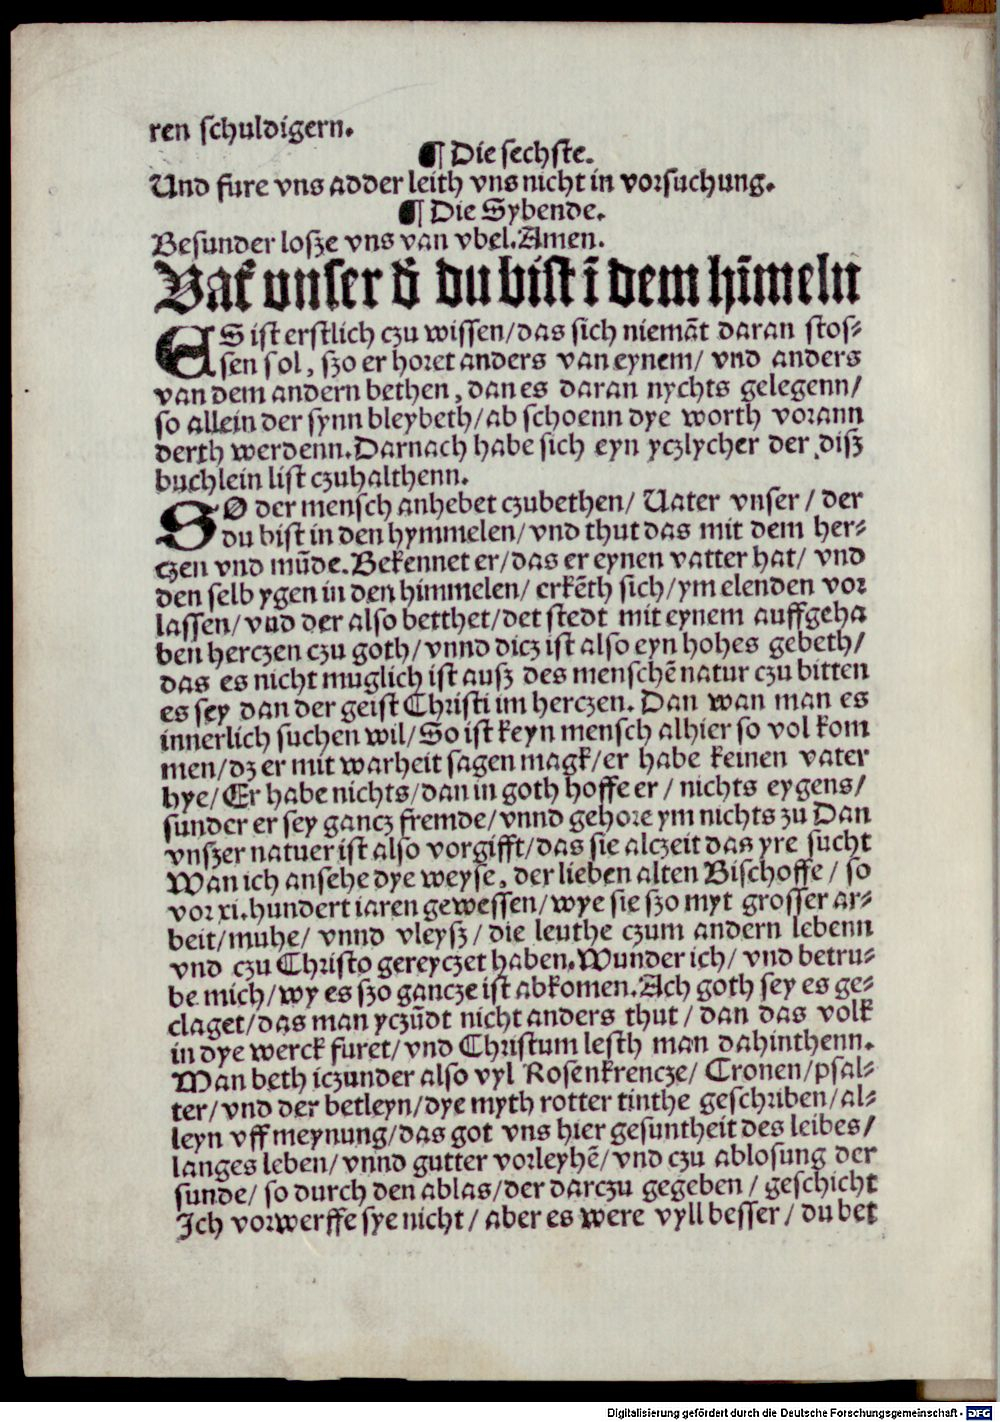 ren schuldigern.
¶ Die sechste.
Und fure vns adder leith vns nicht in vorsuchung.
¶ Die Sybende.
Besunder losze vns van vbel. Amen.
Vat vnser d̄ du bist ī dem hīmeln
ES ist erstlich czu wissen/ das sich niemāt daran stos⸗
sen sol, szo er horet anders van eynem/ vnd anders
van dem andern bethen, dan es daran nychts gelegenn/
so allein der synn bleybeth/ ab schoenn dye worth vorann
derth werdenn. Darnach habe sich eyn yczlycher der disz
buchlein list czuhalthenn.
SO der mensch anhebet czubethen/ Uater vnser/ der
du bist in den hymmelen/ vnd thut das mit dem her⸗
czen vnd mūde. Bekennet er/ das er eynen vatter hat/ vnd
den selb ygen in den himmelen/ erkēth sich/ ym elenden vor
lassen/ vnd der also betthet/ det stedt mit eynem auffgeha
ben herczen czu goth/ vnnd dicz ist also eyn hohes gebeth/
das es nicht muglich ist ausz des menschē natur czu bitten
es sey dan der geist Christi im herczen. Dan wan man es
innerlich suchen wil/ So ist keyn mensch alhier so vol kom
men/ dz er mit warheit sagen magk/ er habe keinen vater
hye/ Er habe nichts/ dan in goth hoffe er/ nichts eygens/
sunder er sey gancz fremde/ vnnd gehore ym nichts zu Dan
vnszer natuer ist also vorgifft/ das sie alczeit das yre sucht
Wan ich ansehe dye weyse, der lieben alten Bischoffe/ so
vor xi. hundert iaren gewessen/ wye sie szo myt grosser ar⸗
beit/ muhe/ vnnd vleysz/ die leuthe czum andern lebenn
vnd czu Christo gereyczet haben. Wunder ich/ vnd betru⸗
be mich/ wy es szo gancze ist abkomen. Ach goth sey es ge⸗
claget/ das man yczūdt nicht anders thut/ dan das volk
in dye werck furet/ vnd Christum lesth man dahinthenn.
Man beth iczunder also vyl Rosenkrencze/ Cronen/ psal⸗
ter/ vnd der betleyn/ dye myth rotter tinthe geschriben/ al⸗
leyn vff meynung/ das got vns hier gesuntheit des leibes/
langes leben/ vnnd gutter vorleyhē/ vnd czu ablosung der
sunde/ so durch den ablas/ der darczu gegeben/ geschicht
Ich vorwerffe sye nicht/ aber es were vyll besser/ du bet
Digitalisierung gefördert durch die Deutsche Forschungsgemeinschaft - DFG